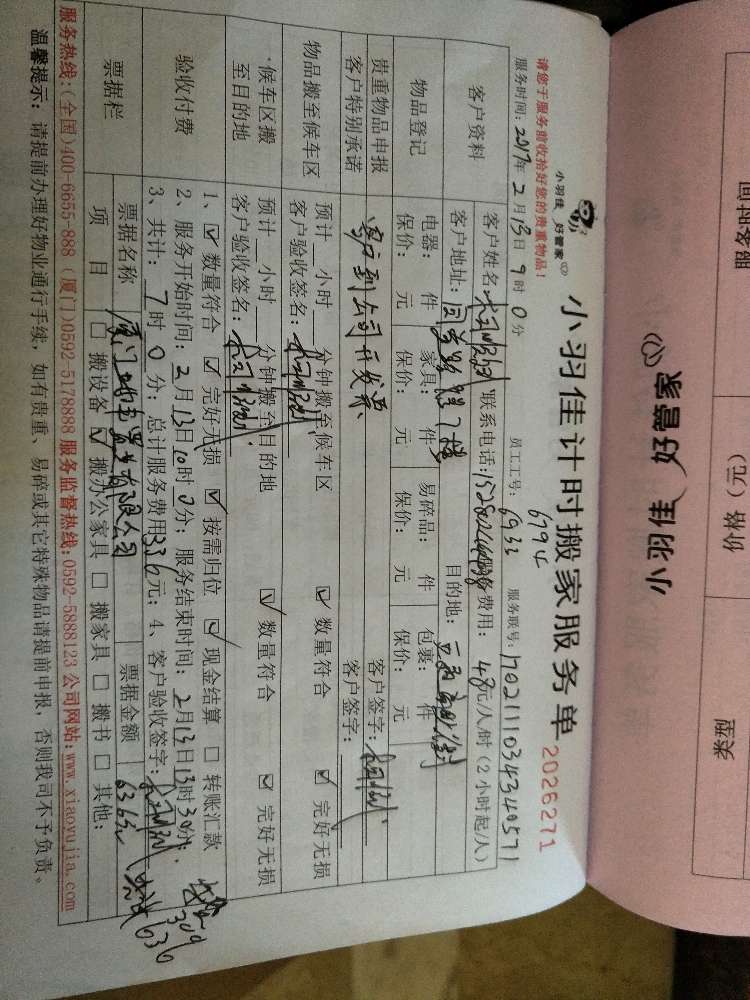 小羽佳 好管家
小羽佳计时搬家服务单
2026271
请您于服务前收拾好您的贵重物品！
员工工号： 6794
6933
服务时间：2017年2月13日9时0分
服务联号：170211103434340571
客户资料
客户姓名：
联系电话：
服务费用：48元/人/时（2小时起/人）
客户地址：
目的地：
物品登记
电器： 件 家具： 件 易碎品： 件 包裹： 件
保价： 元 保价： 元 保价： 元 保价： 元
贵重物品申报
客户特别承诺
客户到公司开发票
客户签字：
客户签字：
物品搬至候车区
预计 小时 分钟搬至候车区
数量符合 完好无损
客户验收签名：
候车区搬至目的地
预计 小时 分钟搬至目的地
数量符合 完好无损
客户验收签名：
验收付费
1、 数量符合 完好无损 按需归位 现金结算 转账汇款
2、服务开始时间：2月13日10时0分；服务结束时间：2月13日13时30分；
3、共计：7时0分；总计服务费用336元；4、客户验收签字：
票据栏
票据名称
票据金额 636元
项目 搬设备 搬办公家具 搬家具 搬书 其他：
300
636
服务热线：（全国）400-6655-888（厦门）0592-5178888 服务监督热线：0592-5888123 公司网站：www.xiaoyujia.com
温馨提示：请提前办理好物业通行手续，如有贵重、易碎或其它特殊物品请提前申报，否则我司不予负责。
小羽佳 好管家
服务时间
价格（元）
类型